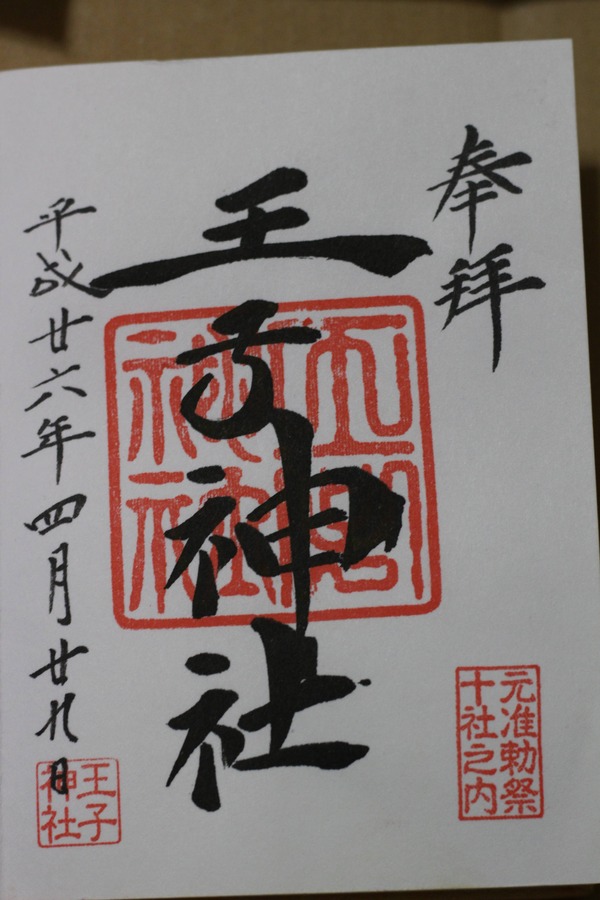 奉拝
元准勅祭
十社之内
王子神社
平成廿六年四月廿九日
王子
神社